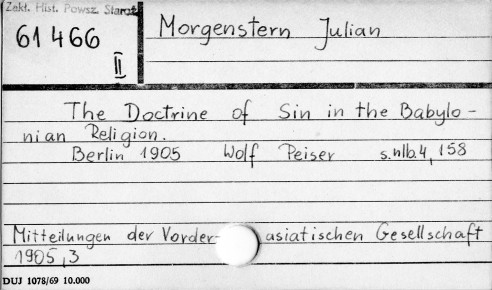 Zakł. Hist. Powsz. Staroż.
61 466
II
Morgenstern Julian
The Doctrine of Sin in the Babylo-
nian Religion.
Berlin 1905 Wolf Peiser s. nlb. 4, 158
Mitteilungen der Vorder- asiatischen Gesellschaft
1905, 3
DUJ 1078/69 10.000